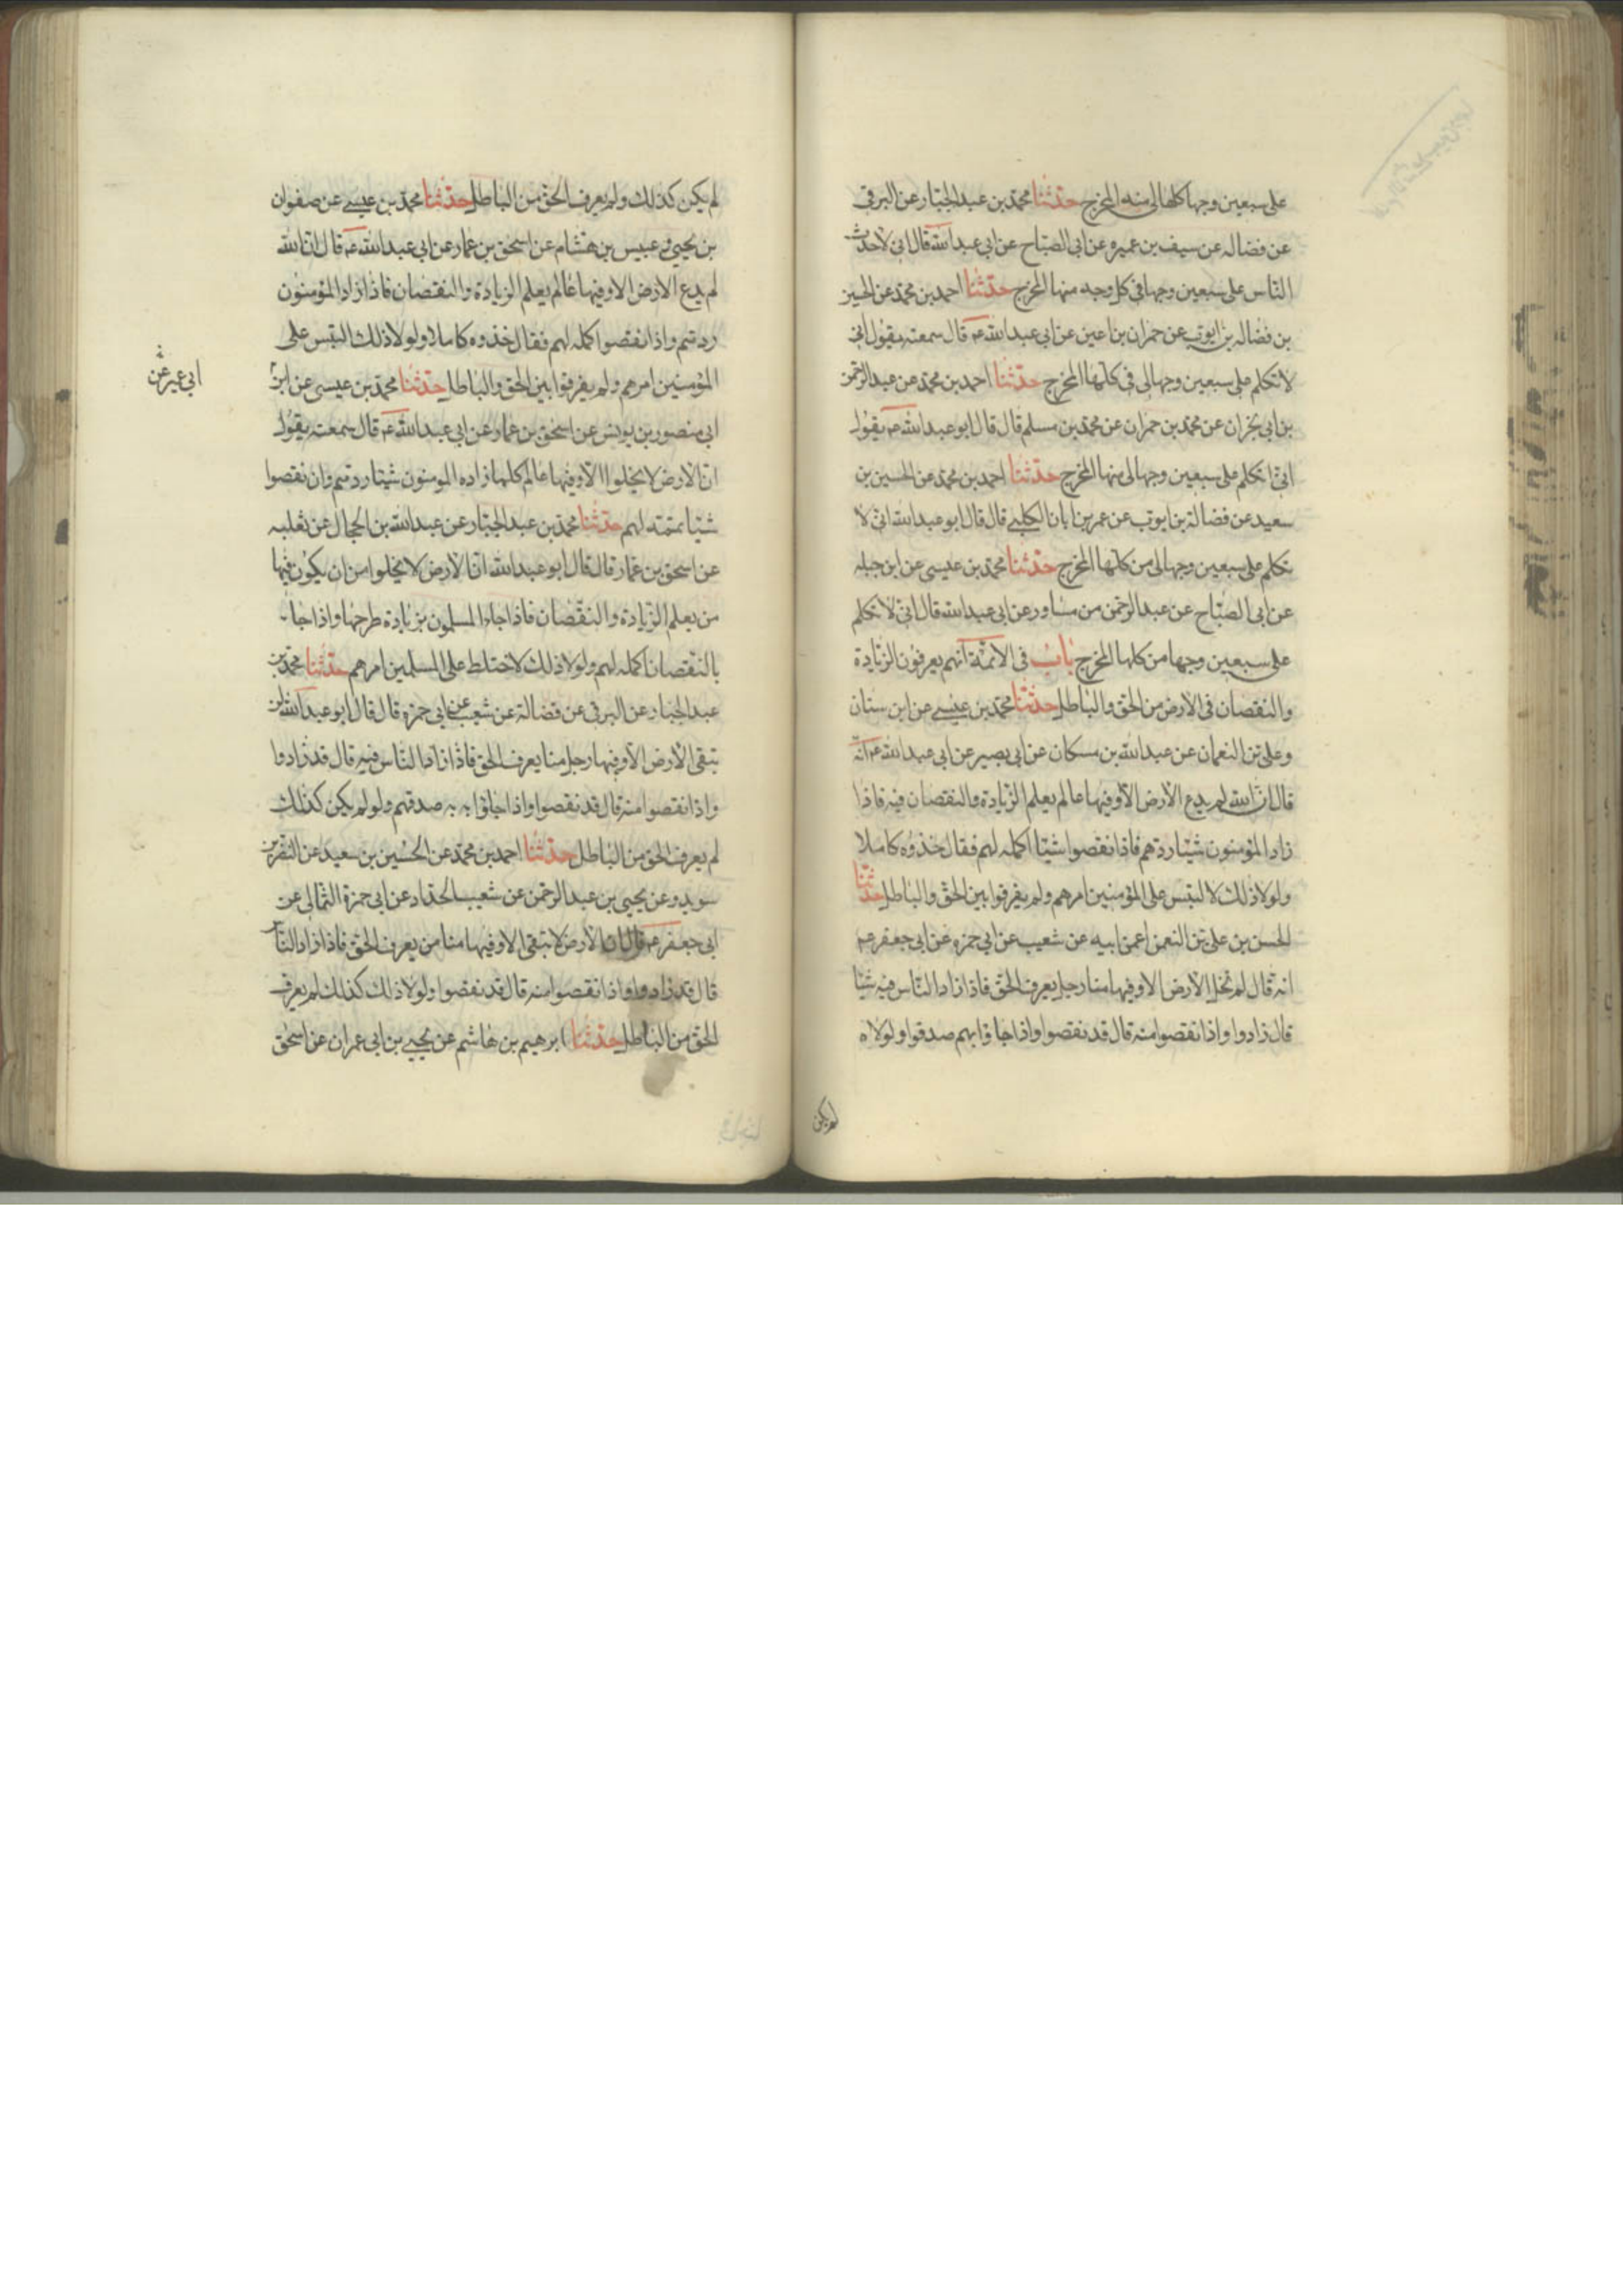 على سبعين وجها كلها لى منه المخرج حدثنا محمد بن عبد الجبار عن البرقى
عن فضاله عن سيف بن عميره عن ابى الصباح عن ابى عبد الله قال انى لاحدث
الناس على سبعين وجها فى كل وجه منها المخرج حدثنا احمد بن محمد عن الحسين
بن فضاله بن ايوب عن حمران بن اعين عن ابى عبد الله عه قال سمعته يقول انى
لاتكلم على سبعين وجها لى فى كلها المخرج حدثنا احمد بن محمد عن عبد الرحمن
بن ابى نجران عن محمد بن حمران عن محمد بن مسلم قال قال ابو عبد الله عه يقول
انى اتكلم على سبعين وجها لى منها المخرج حدثنا احمد بن محمد عن الحسين بن
سعيد عن فضالة بن ايوب عن عمر بن ابان الكلبى قال قال ابو عبد الله انى لا
تكلم على سبعين وجها لى من كلها المخرج حدثنا محمد بن عيسى عن ابن جبله
عن ابى الصباح عن عبد الرحمن من مساور عن ابى عبد الله قال انى لاتكلم
على سبعين وجها من كلها المخرج باب فى الائمة انهم يعرفون الزيادة
والنقصان فى الارض من الحق والباطل حدثنا محمد بن عيسى عن ابن سنان
وعلى بن النعمان عن عبد الله بن مسكان عن ابى بصير عن ابى عبد الله عه انه
قال ان الله لم يدع الارض الا وفيها عالم يعلم الزيادة والنقصان فيه فاذا
زاد المؤمنون شيئا ردهم فاذا نقصوا شيئا اكمله لهم فقال خذوه كاملا
ولولا ذلك لالتبس على المؤمنين امرهم ولم يفرقوا بين الحق والباطل حدثنا
الحسن بن على بن النعمن عن ابيه عن شعيب عن ابى حمزه عن ابى جعفر عه
انه قال لم تخل الارض الا وفيها منا رجل يعرف الحق فاذا زاد الناس فيه شيئا
قال زادوا واذا نقصوا منه قال قد نقصوا واذا جاؤا بهم صدقوا ولولاه
لم يكن
لم يكن كذلك ولم يعرف الحق من الباطل حدثنا محمد بن عيسى عن صفوان
بن يحيى وعبيس بن هشام عن اسحق بن عمار عن ابى عبد الله عه قال ان الله
لم يدع الارض الا وفيها عالم يعلم الزيادة والنقصان فاذا زاد المؤمنون
ردتهم واذا نقصوا اكمله لهم فقال خذوه كاملا ولولا ذلك التبس على
المؤمنين امرهم ولم يفرقوا بين الحق والباطل حدثنا محمد بن عيسى عن ابن
ابى عمير عن
ابى منصور بن يونس عن اسحق بن عمار عن ابى عبد الله عه قال سمعته يقول
ان الارض لا يخلوا الا وفيها عالم كلما زاده المومنون شيئا ردتهم وان نقصوا
شيئا تممته لهم حدثنا محمد بن عبد الجبار عن عبد الله بن الحجال عن ثعلبه
عن اسحق بن عمار قال قال ابو عبد الله ان الارض لا يخلوا من ان يكون فيها
من يعلم الزيادة والنقصان فاذا جاء المسلمون بزيادة طرحها واذا جا
بالنقصان اكمله لهم ولولا ذلك لاختلط على المسلمين امرهم حدثنا محمد بن
عبد الجبار عن البرقى عن فضالة عن شعيب عن ابى حمزه قال قال ابو عبد الله لن
تبقى الارض الا وفيها رجل منا يعرف الحق فاذا زاد الناس فيه قال قد زادوا
واذا نقصوا منه قال قد نقصوا واذا جاؤا به به صدقهم ولو لم يكن كذلك
لم يعرف الحق من الباطل حدثنا احمد بن محمد عن الحسين بن سعيد عن النضر بن
سويد وعن يحيى بن عبد الرحمن عن شعيب الحداد عن ابى حمزة الثمالى عن
ابى جعفر عه قال ان الارض لا تبقى الا وفيها منا من يعرف الحق فاذا زاد الناس
قال قد زادوا واذا نقصوا منه قال قد نقصوا ولولا ذلك كذلك لم يعرف
الحق من الباطل حدثنا ابرهيم بن هاشم عن يحيى بن ابى عمران عن اسحق